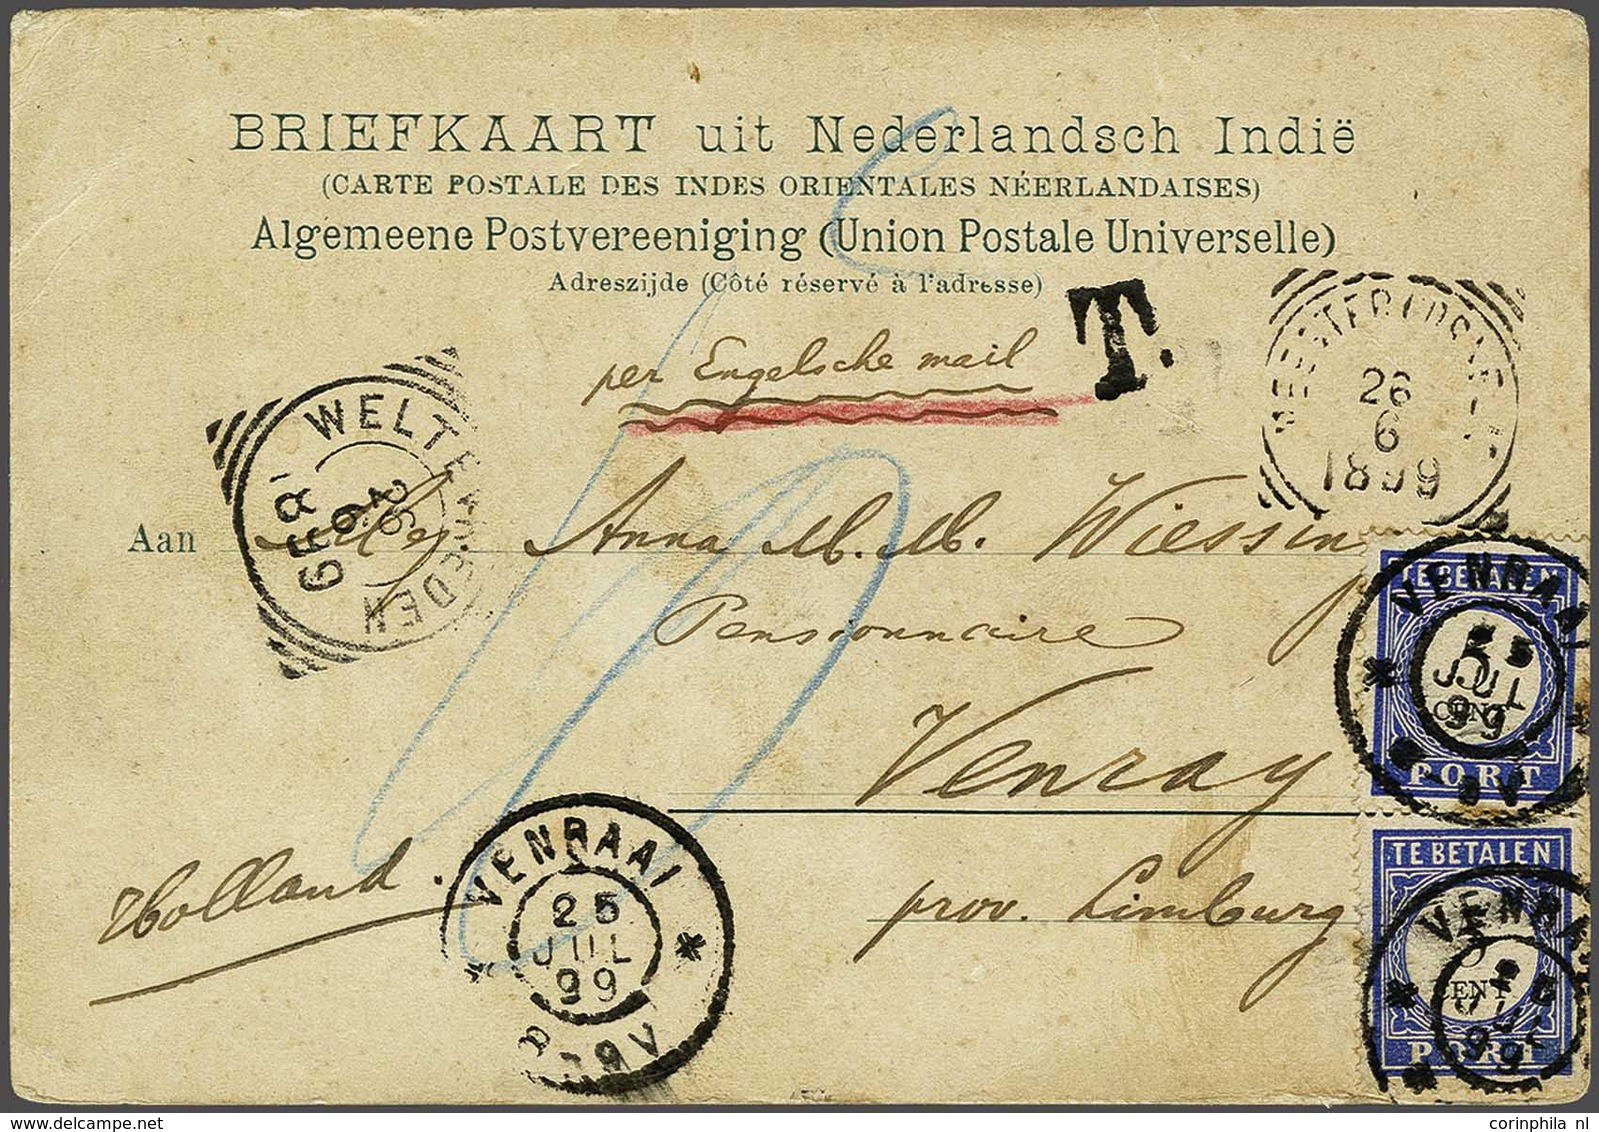 BRIEFKAART uit Nederlandsch Indië
(CARTE POSTALE DES INDES ORIENTALES NÉERLANDAISES)
Algemeene Postvereeniging (Union Postale Universelle)
Adreszijde (Côté réservé à l'adresse)
per Engelsche mail
T.
26
6
1899
WELTEVREDEN
Aan
Anna M. M. Wiessing
Pensionnaire
Venray
Holland.
prov. Limburg
VENRAAI
25
JUL
99
TE BETALEN
5
CENT
PORT
VENRAAI
JUL
99
TE BETALEN
5
CENT
PORT
VENRAAI
99
corinphila nl